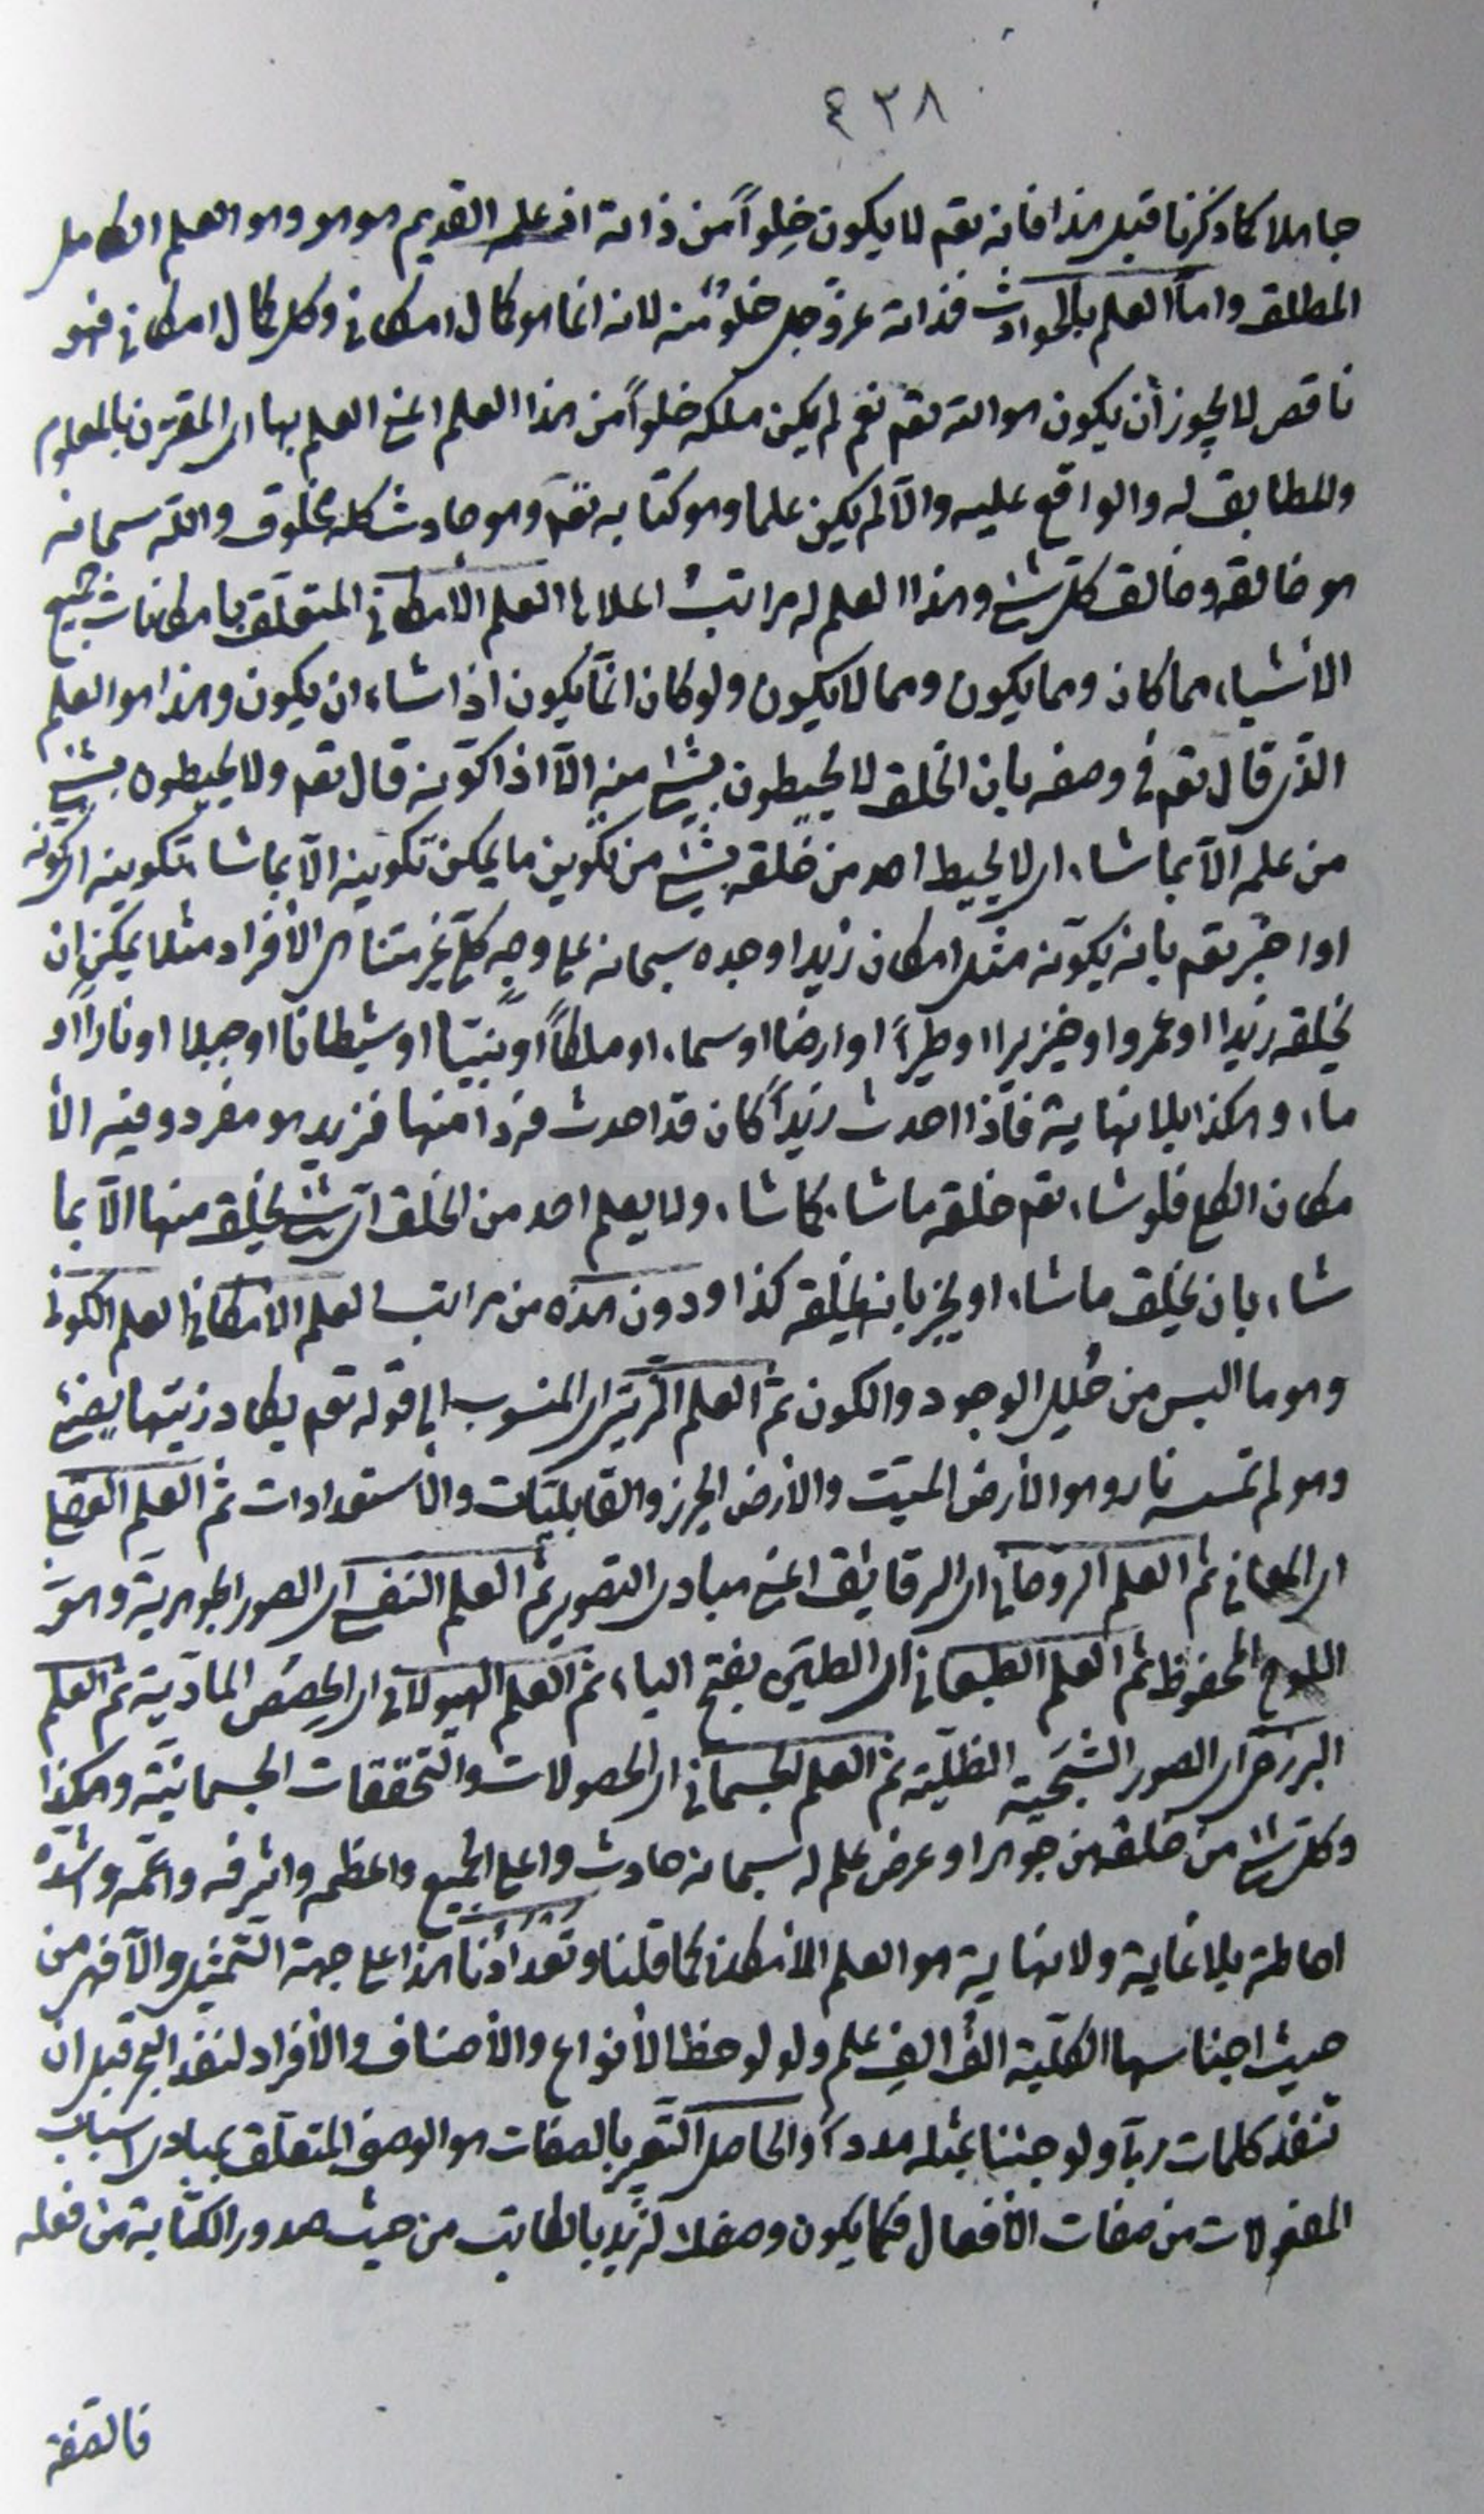 ٤٣٨
جاهلا كما ذكرنا قبل هذا فانه تعم لا يكون خِلواً من ذاته اذ علمه القديم هو هو وهو العلم الكامل
المطلق واما العلم بالحوادث فذاته عزّ وجل خلوٌ منه لانه انما هو كمال امكاني وكل كمال امكاني فهو
ناقص لا يجوز أن يكون هو الله تعم نعم لم يكن ملكه خلواً من هذا العلم اعني العلم بها اى المقترن بالمعلوم
والمطابق له والواقع عليه والّا لم يكن علما وهو كتابه تعم وهو حادث كله مخلوق والله سبحانه
هو خالقه وخالق كل شئ وهذا العلم له مراتب اعلاها العلم الامكاني المتعلّق بامكانات جميع
الأشياء مما كان ومما يكون ومما لا يكون ولو كان انّما يكون اذا شاء ان يكون وهذا هو العلم
الذى قال تعم في وصفه بان الخلق لا يحيطون بشئ منه الّا اذا كوّنه قال تعم ولا يحيطون بشئ
من علمه الّا بما شاء اى لا يحيط احد من خلقه بشئ من تكوين ما يمكن تكوينه الّا بما شاء تكوينه اى كوّنه
او اخبر تعم بانه يكوّنه مثل امكان زيد اوجده سبحانه على وجه كلّى غير متناهى الأفراد مثلا يمكن ان
يخلقه زيدا او عمروا او خنزيرا او طيراً او ارضا او سماء او ملكاً او نبيّا او شيطانا او جبلا او ناراً او
ماء وهكذا بلا نهاية فاذا احدث زيداً كان قد احدث فردا منها فزيد هو مفرد وفيه الأ
مكان الكلى فلو شاء تعم خلقه ما شاء كما شاء ولا يعلم احد من الخلق اى شئ يخلق منها الّا بما
شاء بان يخلق ما شاء او يخبر بانه يخلقه كذا ودون هذه من مراتب العلم الامكاني العلم الكونى
وهو ما البس من حُلل الوجود والكون ثم العلم الزيتى اى المنسوب الى قوله تعم يكاد زيتها يضئ
وهو لم تمسسه نار وهو الأرض الميّت والارض الجرز والقابليّات والاستعدادات ثم العلم العقلى
اى المعاني ثم العلم الروحاني اى الرقايق اعني مبادى التصوير ثم العلم النفسى اى الصور الجوهرية وهو
اللوح المحفوظ ثم العلم الطبيعاني اى الطين بفتح الياء ثم العلم الهيولاني اى الحصص المادّية ثم العلم
البرزخى اى الصور الشبحيّة الظليّة ثم العلم الجسماني اى الحصولات والتحققات الجسمانيّة وهكذا
وكل شئ من خلقه من جوهر او عرض علم له سبحانه حادث واعلى الجميع واعظمه واشرفه واعمّه واشدّه
احاطة بلا غاية ولا نهاية هو العلم الامكاني كما قلنا وتعدادُنا هذا على جهة التمثيل والّا فهى من
حيث اجناسها الكليّة الف الف علم ولو لوحظ الأنواع والأصناف والأفراد لنفد البحر قبل ان
تنفد كلمات ربى ولو جئنا بمثله مدداً والحاصل التعبير بالصفات هو الوصف المتعلّق بمبادى اسباب
المفعولات من صفات الأفعال فكما يكون وصفك لزيد بالكاتب من حيث صدور الكتابة من فعله
فالصفة